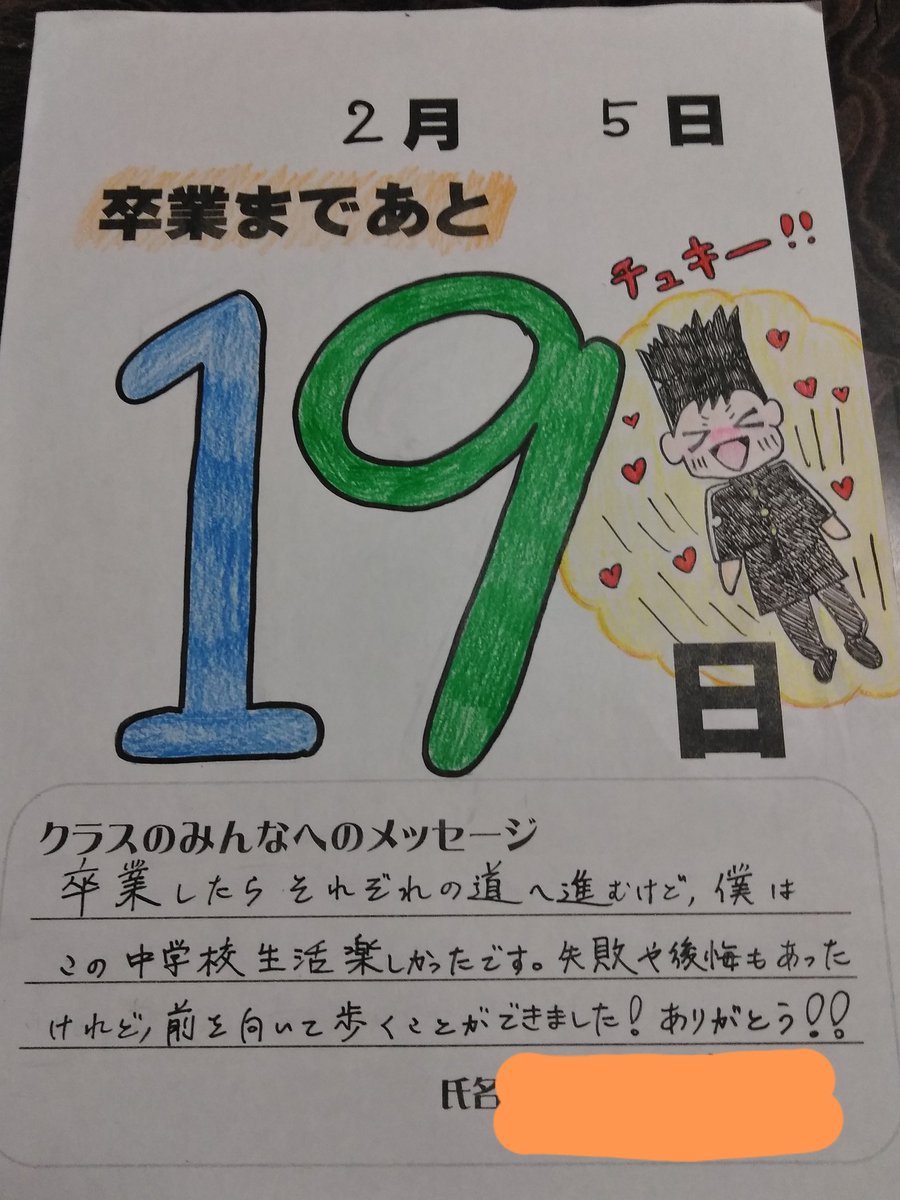 2月 5日
卒業まであと
チュキー!!
19
日
クラスのみんなへのメッセージ
卒業したらそれぞれの道へ進むけど, 僕は
この中学校生活楽しかったです。失敗や後悔もあった
けれど, 前を向いて歩くことができました! ありがとう!!
氏名